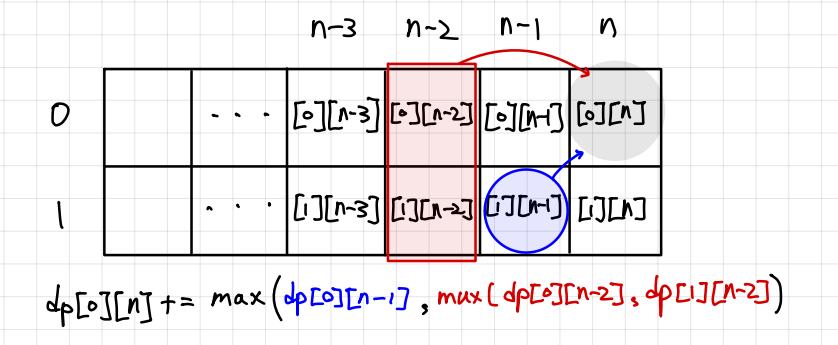 n-3 n-2 n-1 n
0 ... [0][n-3] [0][n-2] [0][n-1] [0][n]
1 ... [1][n-3] [1][n-2] [1][n-1] [1][n]
dp[0][n] += max(dp[0][n-1], max(dp[0][n-2], dp[1][n-2])